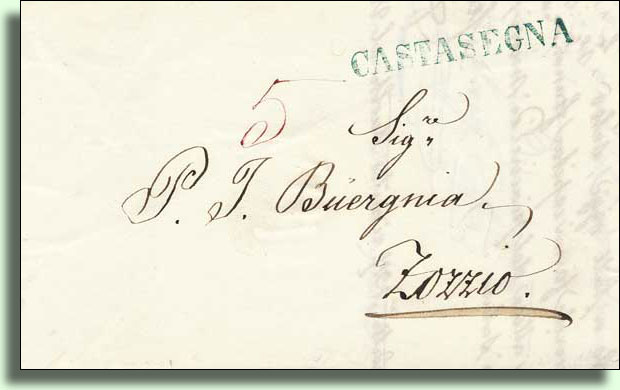 CASTASEGNA
5
Sig.re
P. J. Büergnia
Zozzio.